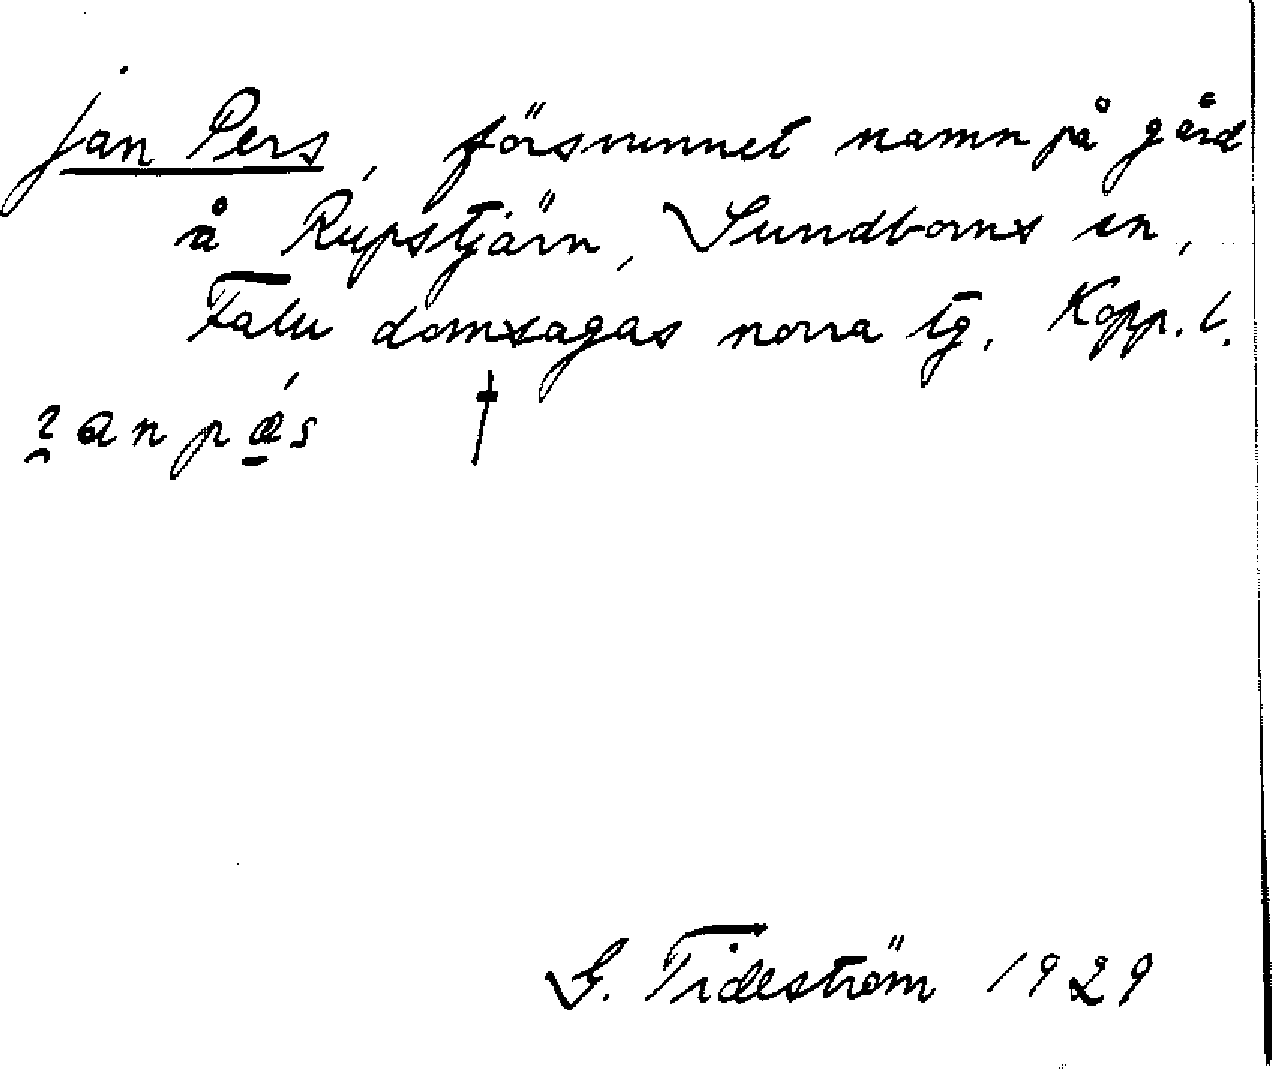 Jan Pers, försvunnet namn på gård
å Rupstjärn, Sundborns sn,
Falu domsagas norra tg. Kopp. l.
anpæ´s †
G. Tideström 1929